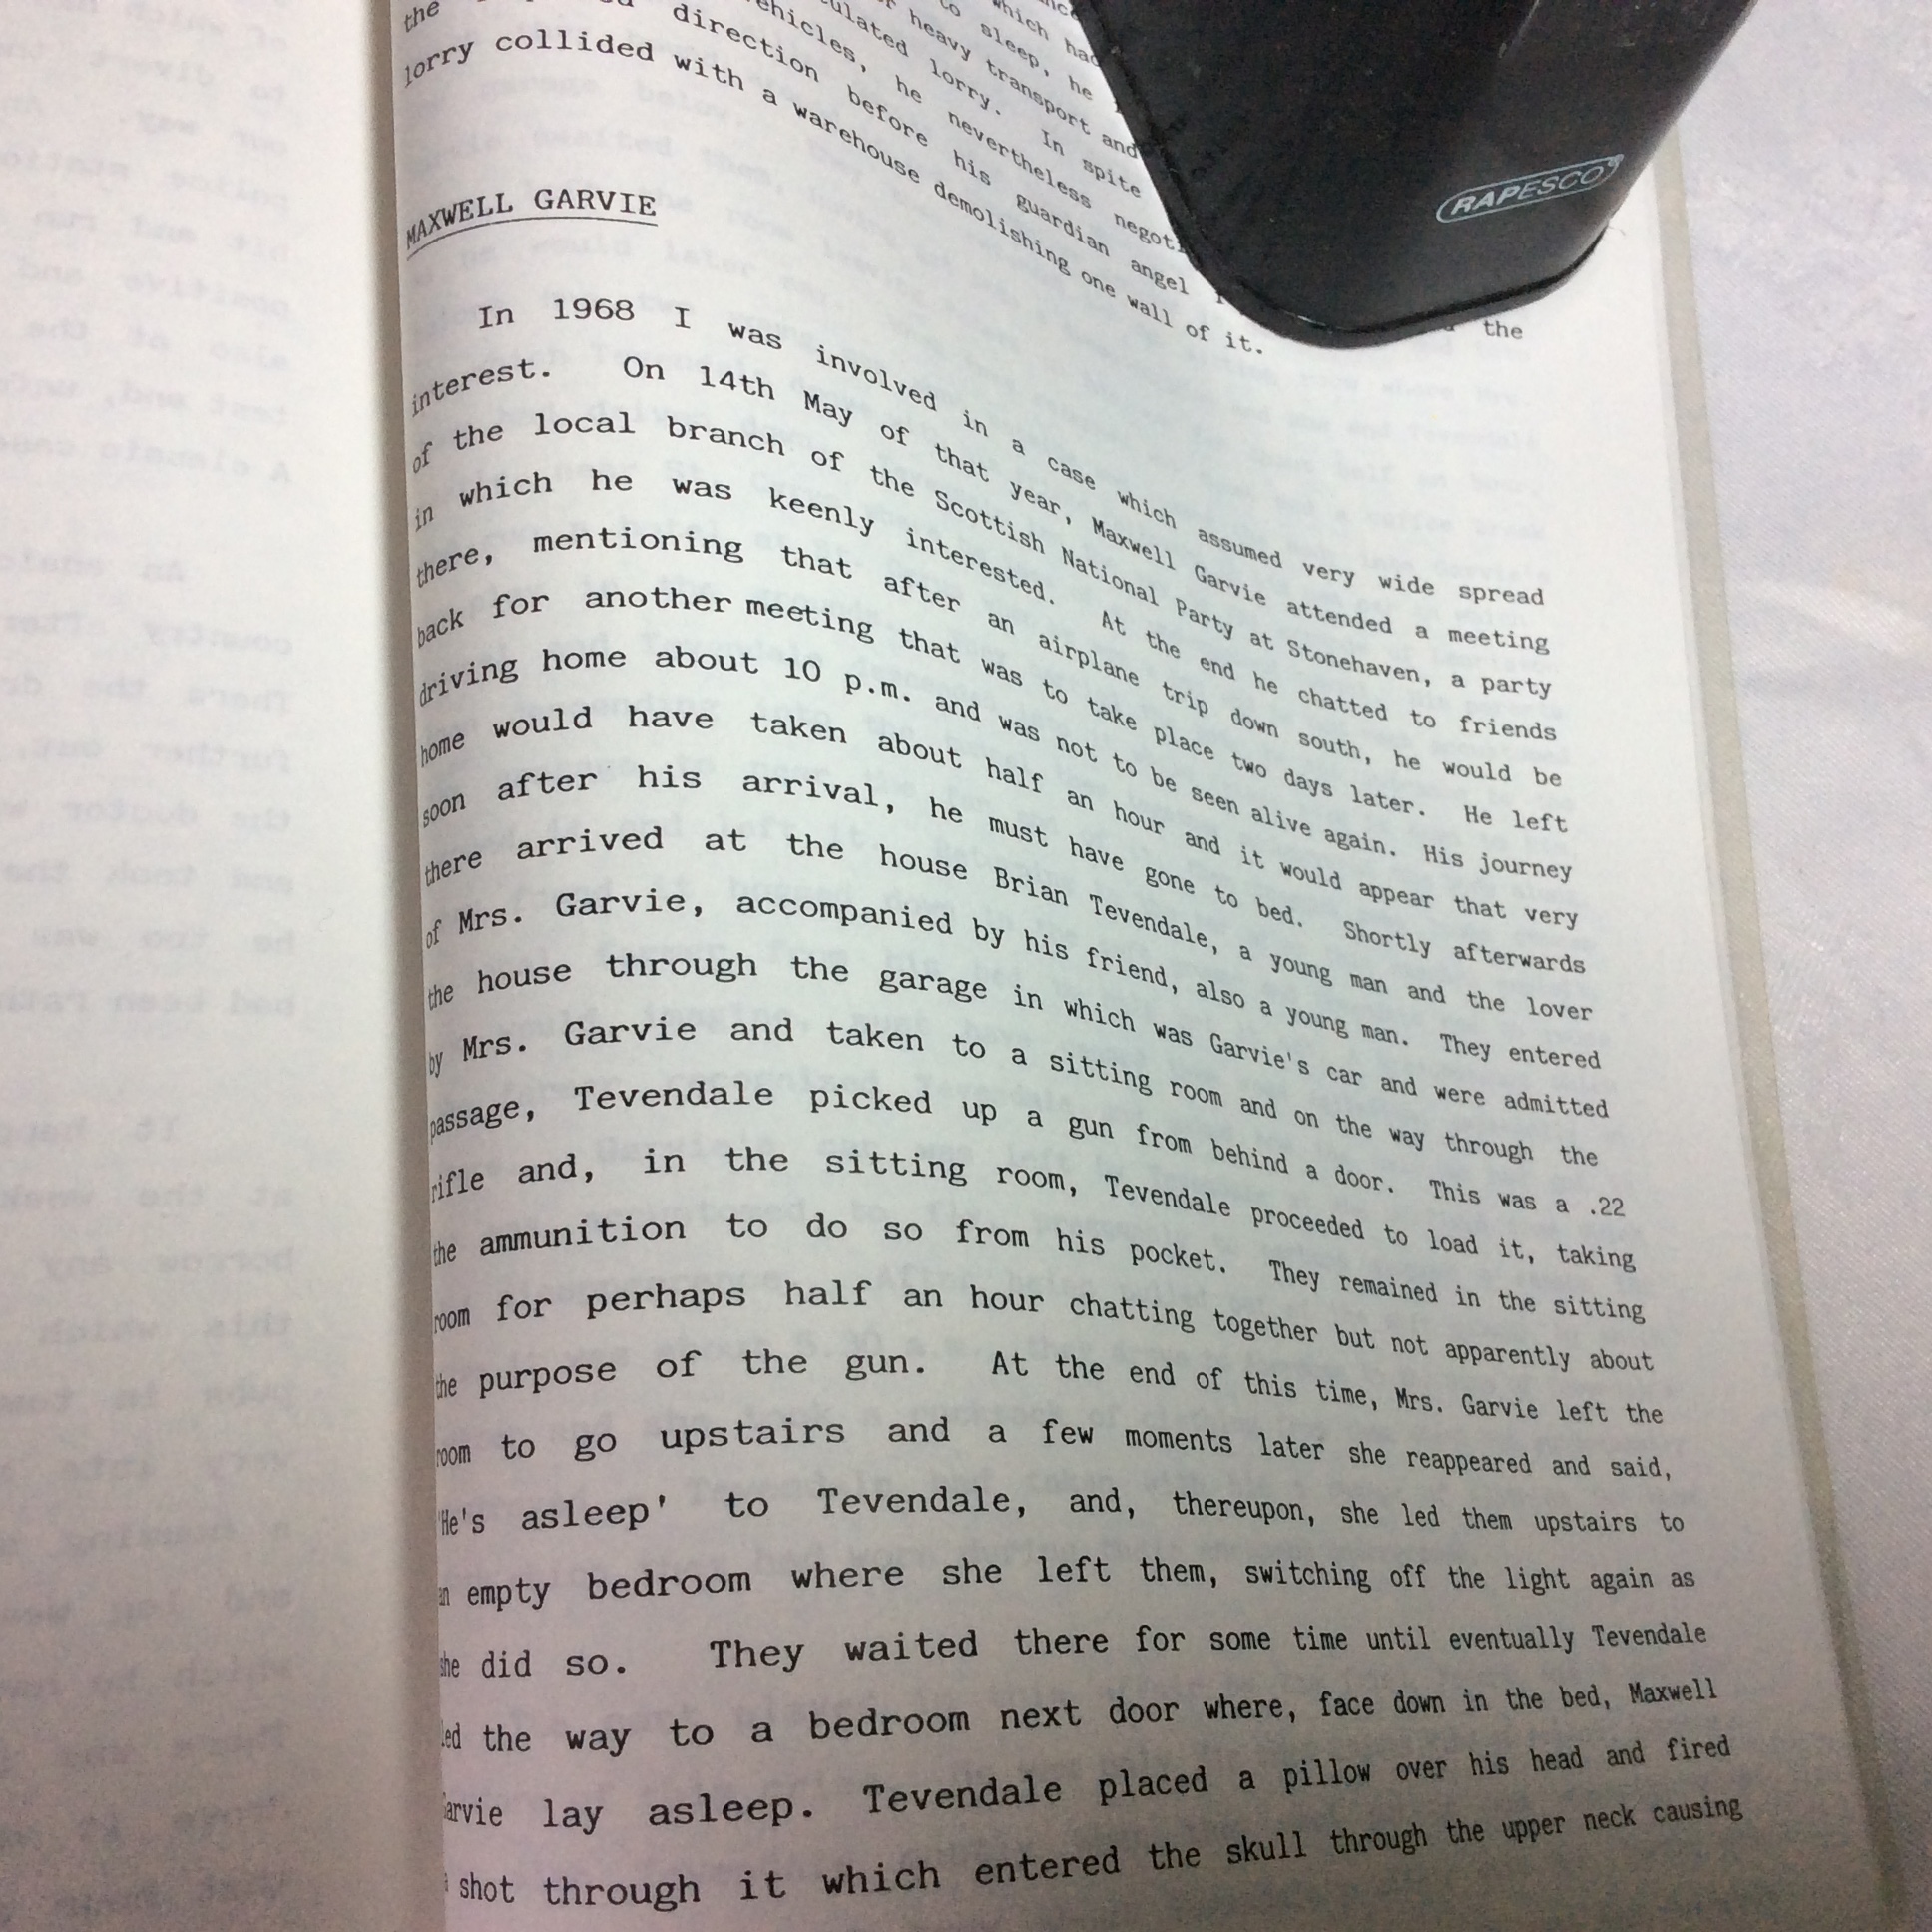 which had
to sleep, he
heavy transport and
ulated lorry. In spite
ehicles, he nevertheless
the direction before his guardian angel the
lorry collided with a warehouse demolishing one wall of it.
RAPESCO®
MAXWELL GARVIE
In 1968 I was involved in a case which assumed very wide spread
interest. On 14th May of that year, Maxwell Garvie attended a meeting
of the local branch of the Scottish National Party at Stonehaven, a party
in which he was keenly interested. At the end he chatted to friends
there, mentioning that after an airplane trip down south, he would be
back for another meeting that was to take place two days later. He left
driving home about 10 p.m. and was not to be seen alive again. His journey
home would have taken about half an hour and it would appear that very
soon after his arrival, he must have gone to bed. Shortly afterwards
there arrived at the house Brian Tevendale, a young man and the lover
of Mrs. Garvie, accompanied by his friend, also a young man. They entered
the house through the garage in which was Garvie's car and were admitted
by Mrs. Garvie and taken to a sitting room and on the way through the
passage, Tevendale picked up a gun from behind a door. This was a .22
rifle and, in the sitting room, Tevendale proceeded to load it, taking
the ammunition to do so from his pocket. They remained in the sitting
room for perhaps half an hour chatting together but not apparently about
the purpose of the gun. At the end of this time, Mrs. Garvie left the
room to go upstairs and a few moments later she reappeared and said,
'He's asleep' to Tevendale, and, thereupon, she led them upstairs to
an empty bedroom where she left them, switching off the light again as
she did so. They waited there for some time until eventually Tevendale
led the way to a bedroom next door where, face down in the bed, Maxwell
Garvie lay asleep. Tevendale placed a pillow over his head and fired
a shot through it which entered the skull through the upper neck causing